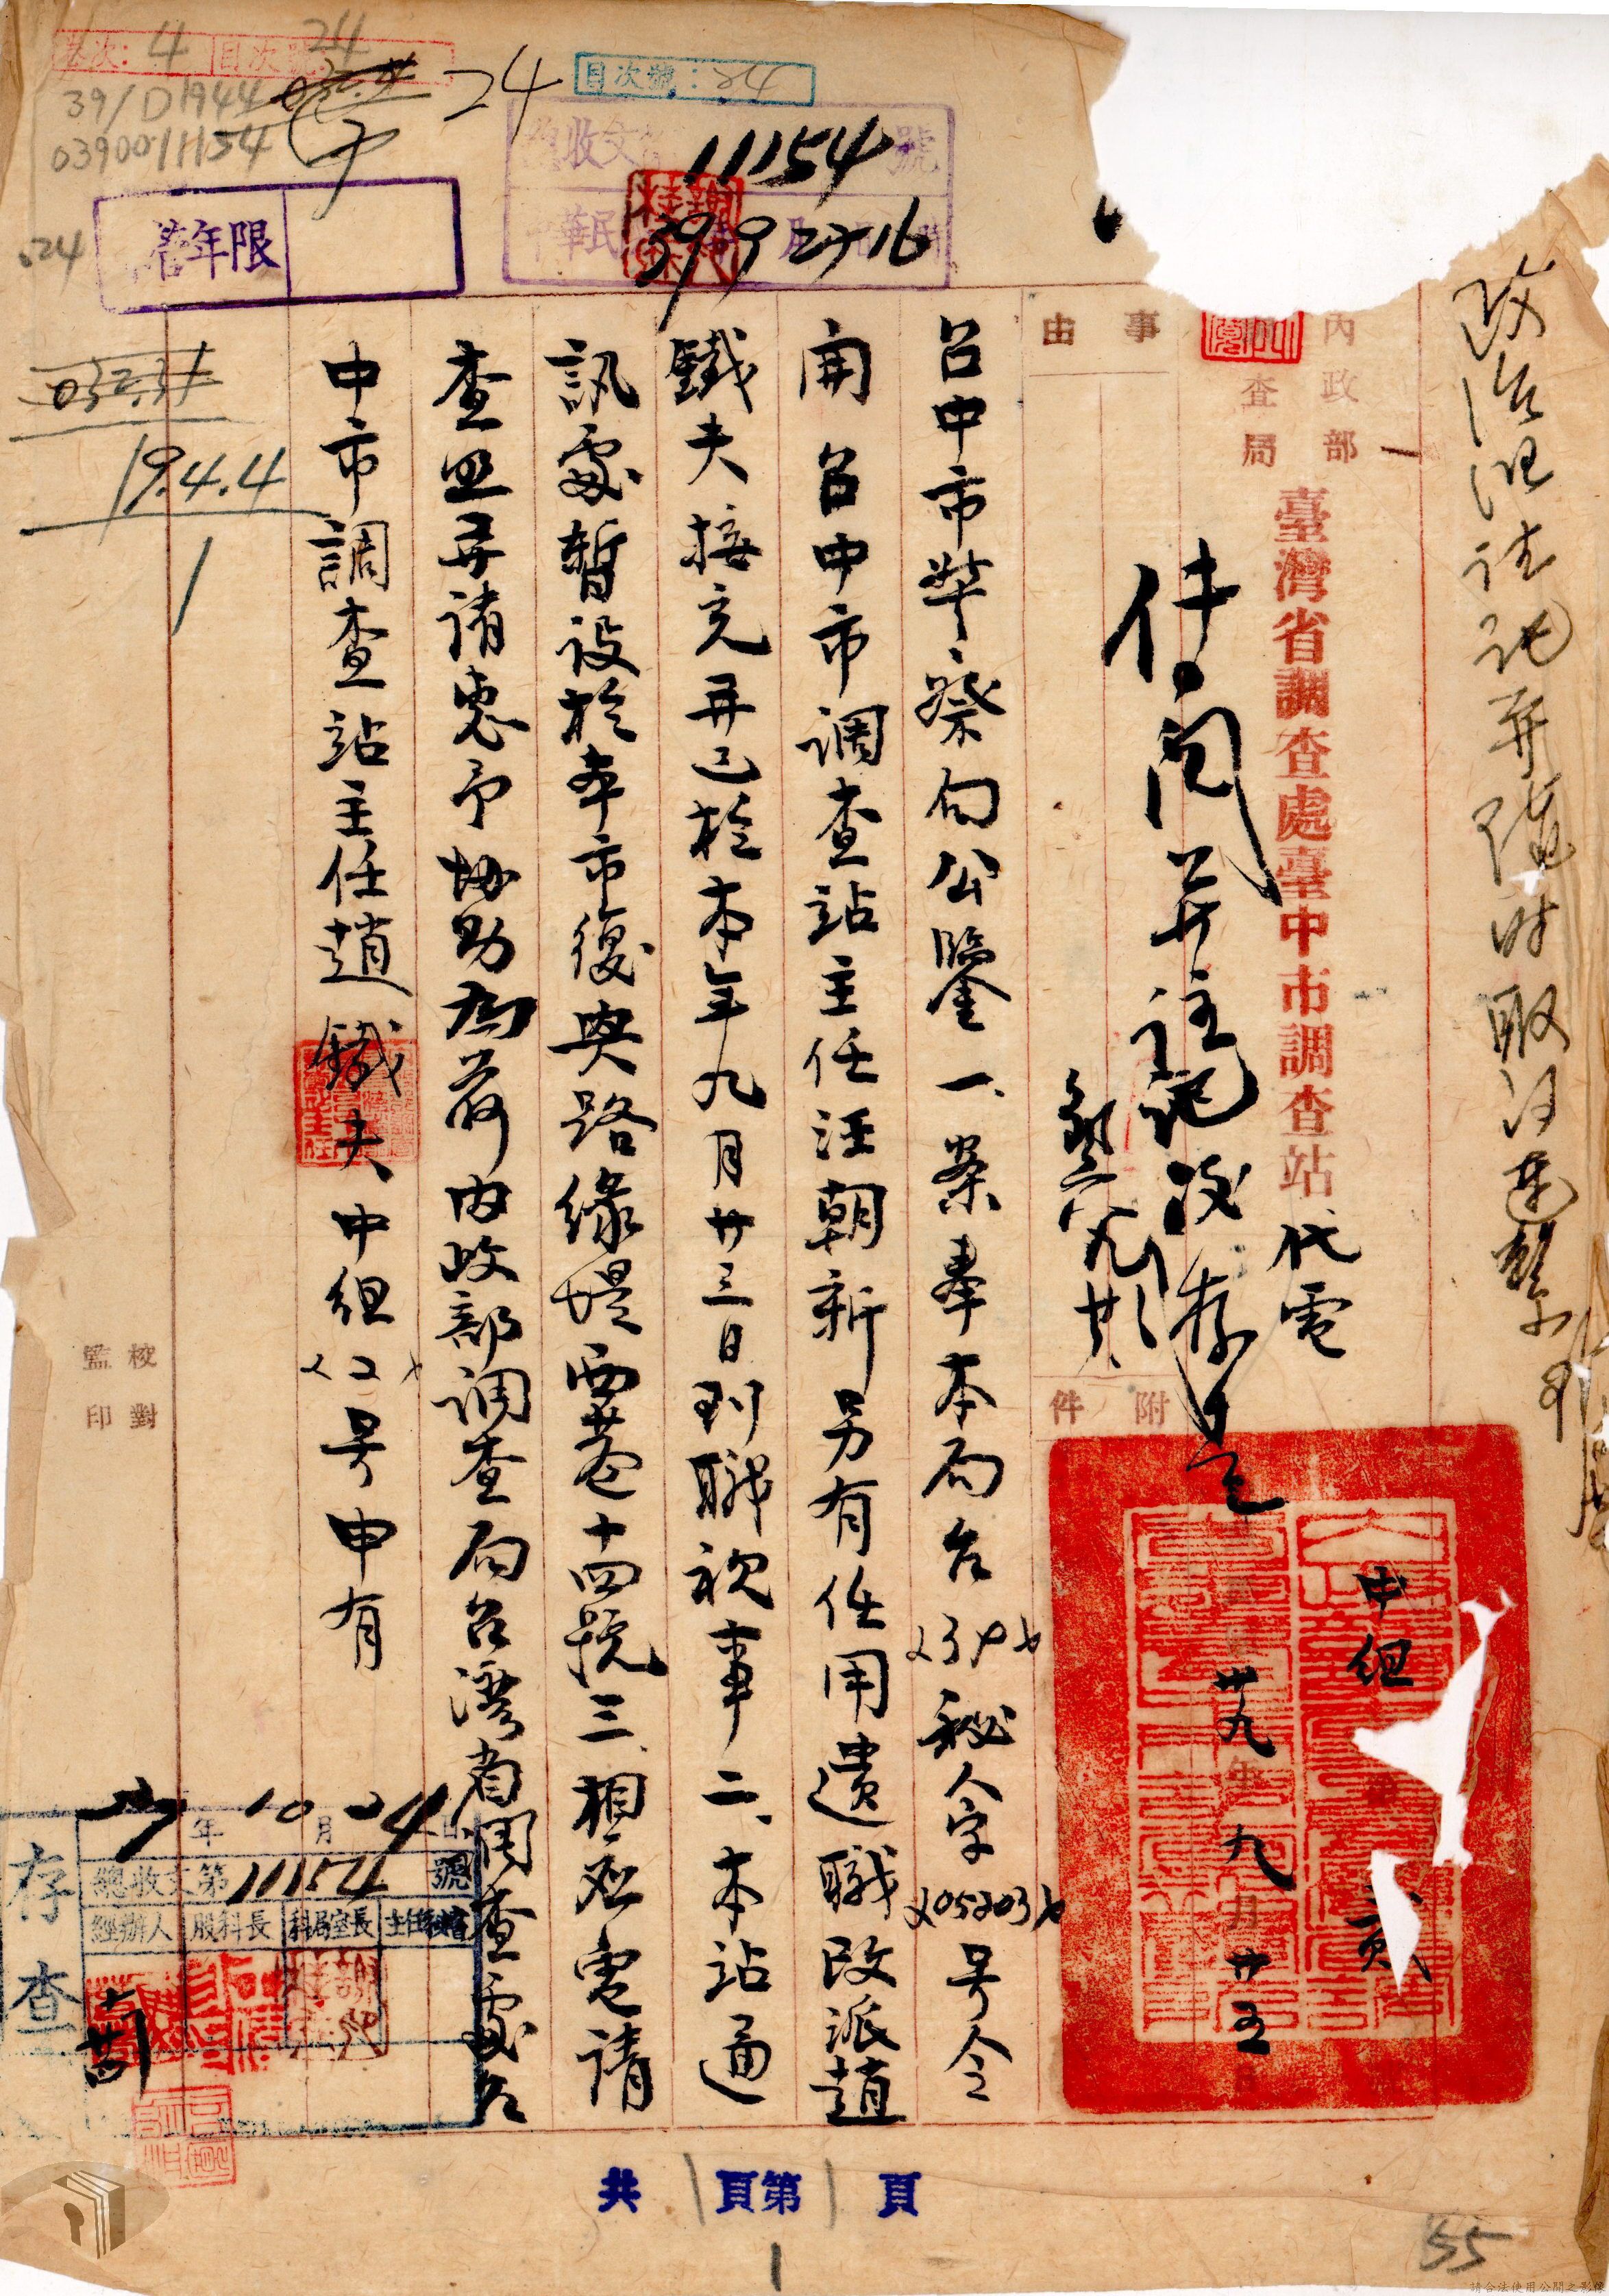 卷次：4 目次號：24
39/D1944
0390011154
24
目次號：24
總收文 11154 號
39 9 27 16
.24
年限
內政部
查局
臺灣省調查處臺中市調查站 代電
事由
附件
中組
卅九年九月廿五日
傳閱並註記後存
台中市警察局公鑒一、案奉本局台(39)秘人字(05203)号令
開台中市調查站主任汪朝新另有任用遺職改派趙
鐵夫接充并已於本年九月廿三日到職視事二、本站通
訊處暫設於本市復興路綠堤西巷十四號三、相應電請
查照并請惠予協助為荷內政部調查局台灣省調查處台
中市調查站主任趙鐵夫中組(2)号申有
032.31
19.4.4
1
校對
監印
存查
年 10 月 24 日
總收文第 11154 號
經辦人 股科長 科局室長 主任秘書
共 1 頁第 1 頁
1
55
請合法使用公開之影像